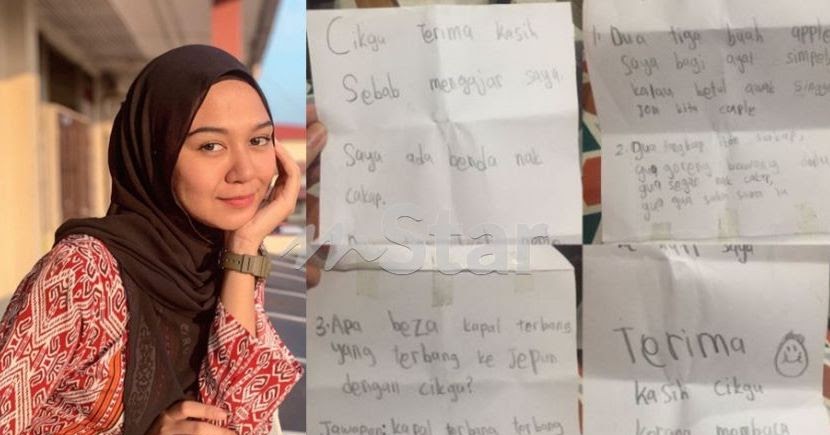 Cikgu Terima Kasih
Sebab mengajar saya.
Saya ada benda nak
cakap.
1. Dua tiga buah apple
Saya bagi ayat simpel
kalau betul awak single
Jom kita couple
2. Gua tangkap ikan siakap,
gua goreng bawang
gua segan nak cakap,
gua
mStar
3. Apa beza kapal terbang
yang terbang ke Jepun
dengan cikgu?
Jawapan: kapal terbang terbang
saya
Terima
kasih cikgu
kerana membaca